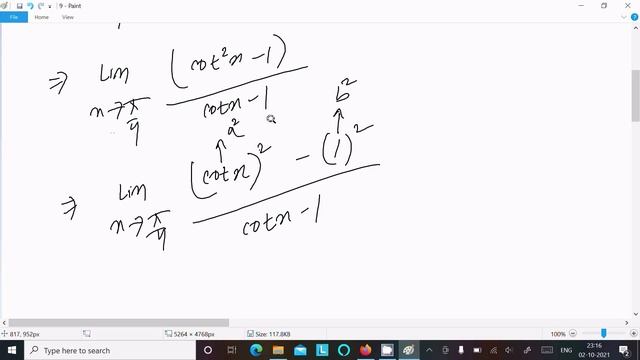 9 - Paint
File Home View
⇒ lim x→π/4 (cot²x - 1) / cotx - 1
a² b²
⇒ lim x→π/4 (cotx)² - (1)² / cotx - 1
817, 952px 5264 × 4768px Size: 117.8KB 100%
ENG 23:16 02-10-2021